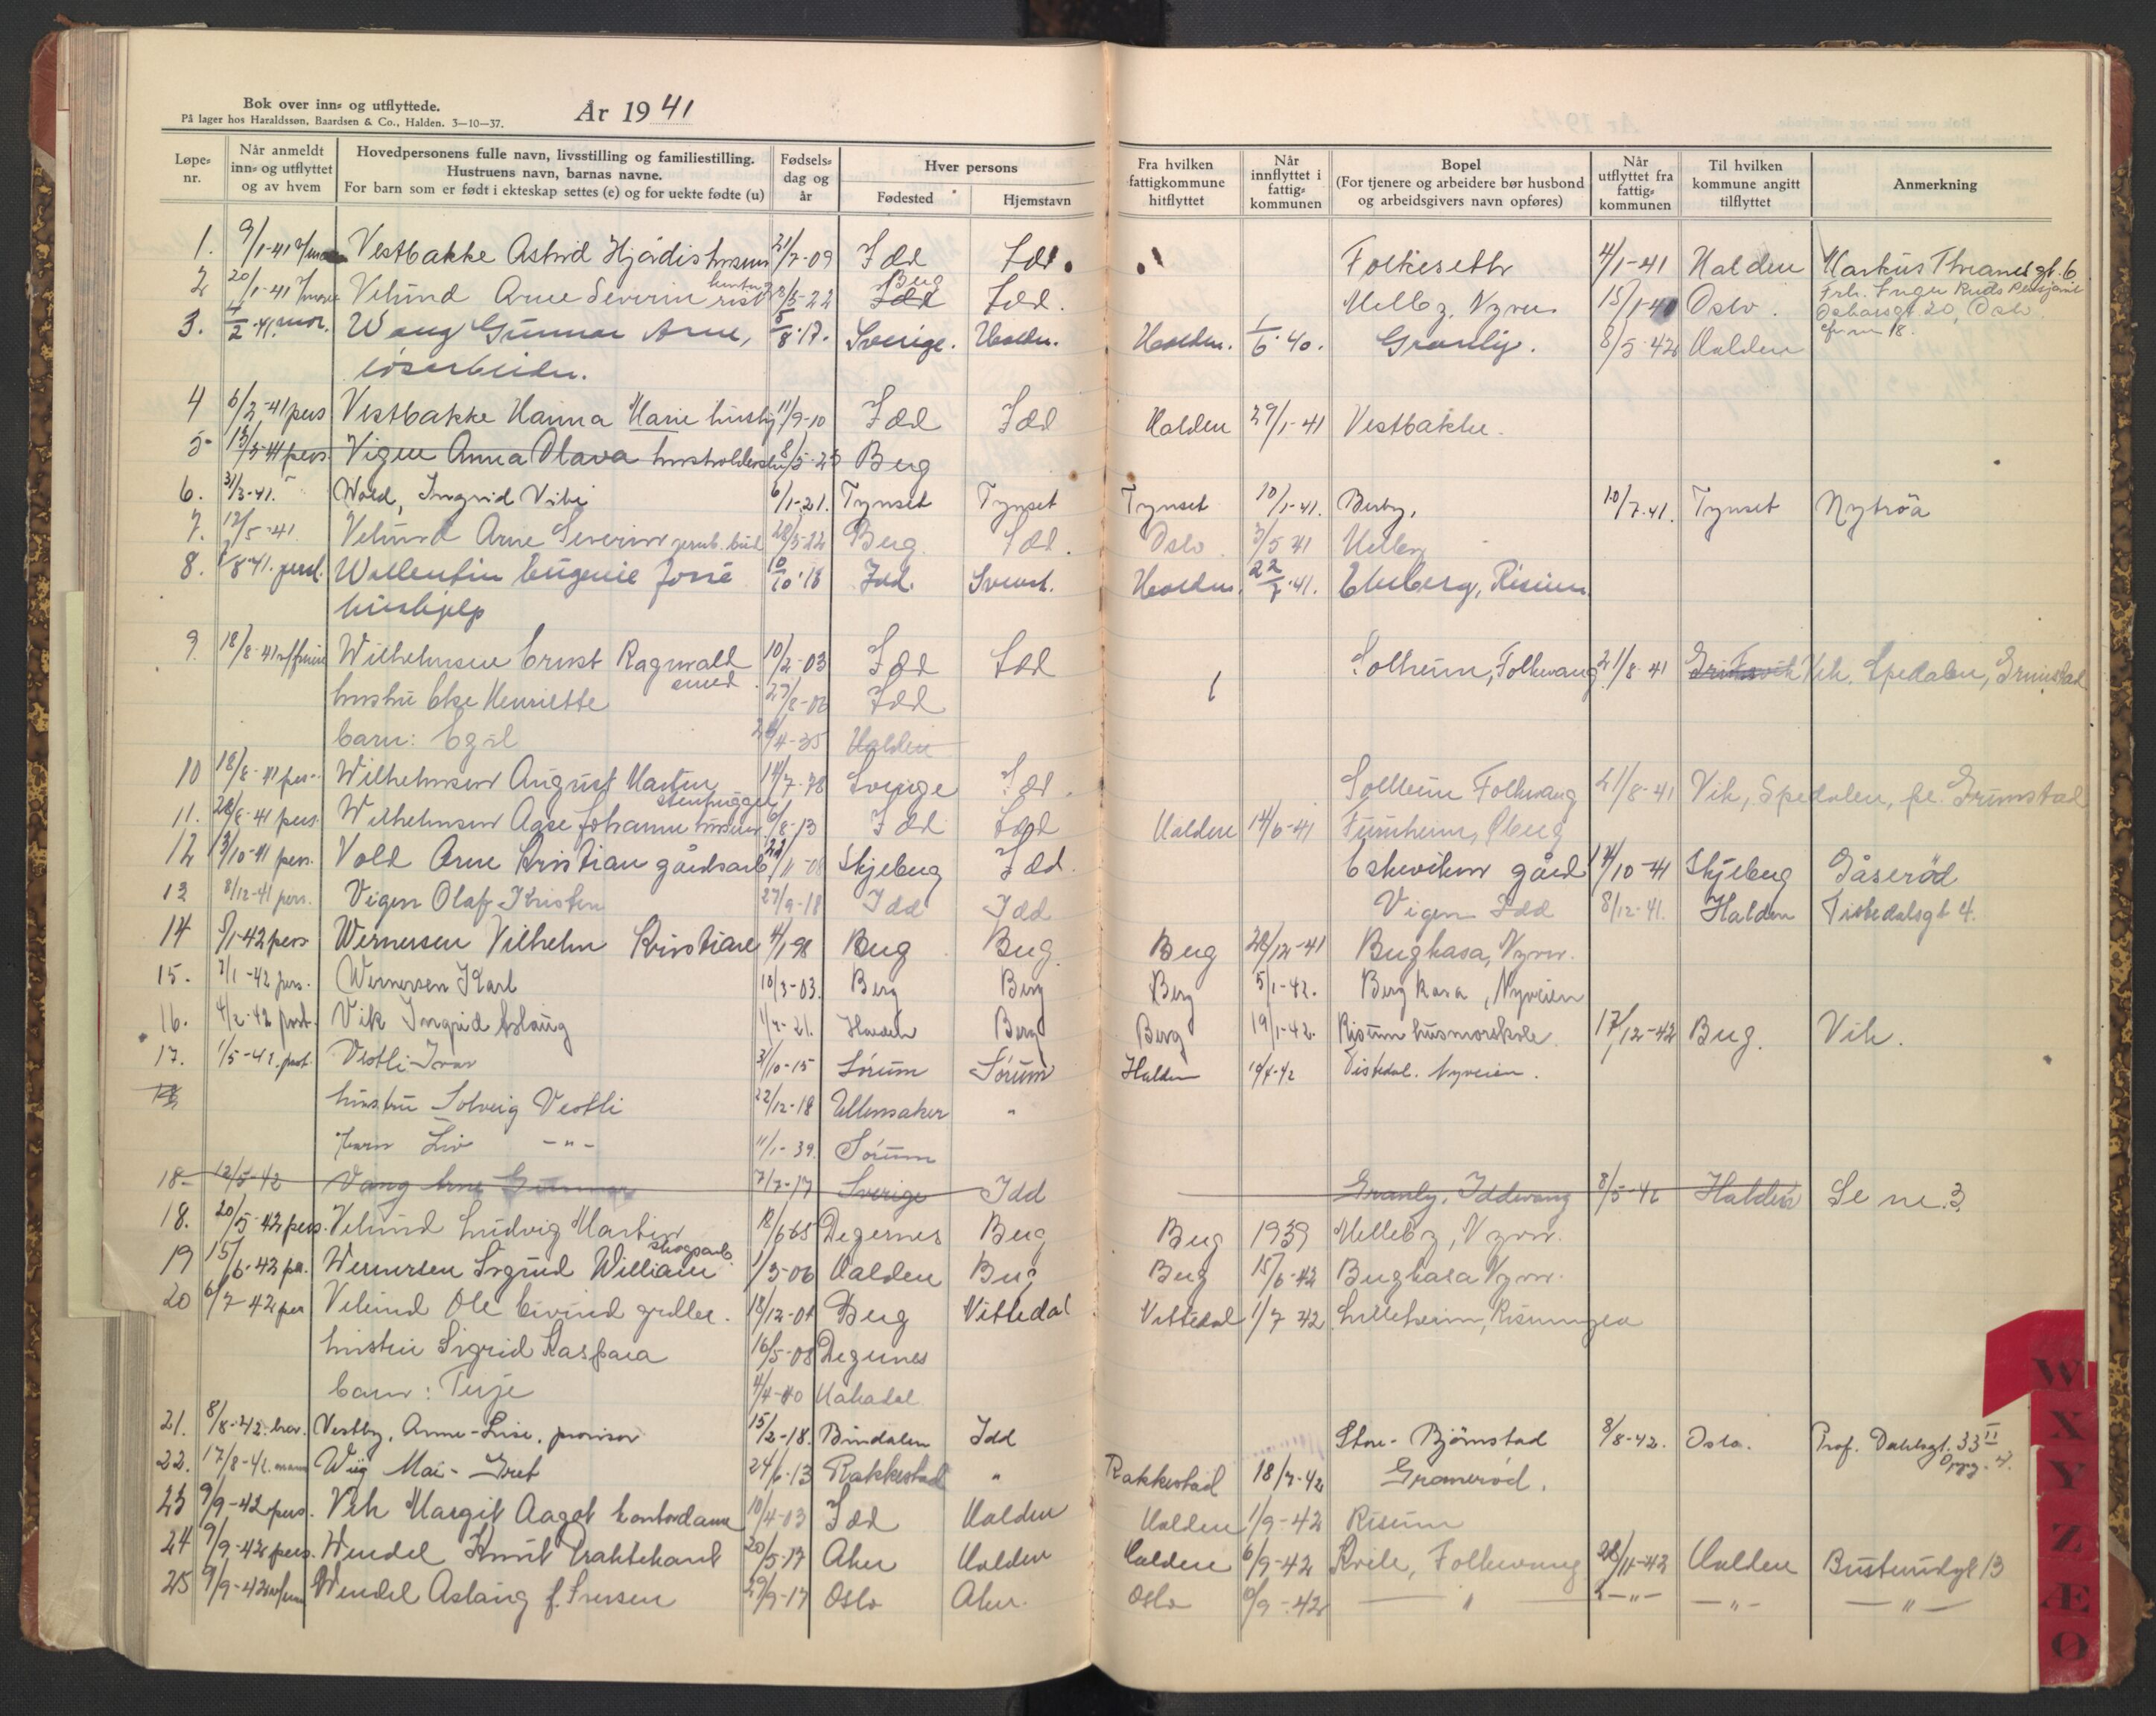 Bok over inn- og utflyttede.
På lager hos Haraldssøn, Baardsen & Co., Halden. 3—10—37.
År 1941
Løpe-nr. Når anmeldt inn- og utflyttet og av hvem Hovedpersonens fulle navn, livsstilling og familiestilling. Hustruens navn, barnas navne. For barn som er født i ekteskap settes (e) og for uekte fødte (u) Fødsels-dag og år Hver persons Fødested Hjemstavn Fra hvilken fattigkommune hitflyttet Når innflyttet i fattig-kommunen Bopel (For tjenere og arbeidere bør husbond og arbeidsgivers navn opføres) Når utflyttet fra fattig-kommunen Til hvilken kommune angitt tilflyttet Anmerkning
1. 9/1-41 Vestbakke Astrid Hjørdis 21/7-09 Idd Idd. 4/1-41 Halden Markus Thranes gt. 6
2 20/1-41 Velund Arne Severin 28/5-22 Berg Idd Idd. Melby, Nyvn. 15/1-40 Oslo. Frk. Inger Ruds Pensjonat
Oskarsgt 20, Oslo.
3. 4/2-41. Wang Gunnar Arne, 8-17. Sverige. Halden. Halden. 1/6-40. Granly. 8/5-42 Halden 18.
løsarbeider.
4 6/2-41 pers Vestbakke Hanna Marie 11/9-10 Idd Idd Halden 29/1-41 Vestbakke.
5 13/3-41 pers. Vigen Anna Olava 8/5-25 Berg
6. 31/3-41. Wold, Ingrid 6/1-21. Tynset Tynset Tynset 10/1-41. Berby, 10/7-41. Tynset Nytrøa
7. 12/5-41. Velund Arne Severin jernb. bud 28/5-22 Berg Idd. Oslo. 3/5 41 Melby
8. 1/8-41. Willentin Eugenie 10/10-18 Idd. Svensk. Halden. 22/7-41. Risum
hushjelp
9. 18/8-41 Wilhelmsen Ernst Ragnvald 10/2-03 Idd Idd Solheim, Folkvang 21/8-41 Vik, Spedalen, Grimstad
smed.
hustru Else Henriette 27/8-06 Idd
barn: Egil 4-35 Halden
10 18/8-41 pers. Wilhelmsen August Martin 14/7-78 Sverige Idd. Solheim Folkvang 21/8-41 Vik, Spedalen, pr. Grimstad
stenhugger
11. 28/8-41 pers. Wilhelmsen Aase Johanne 6/8-13 Idd Idd Halden 14/6-41 Furuheim, Øberg
12 13/10-41 pers. Vold Arne Kristian gårdsarb. 22/11-08 Skjeberg Idd. Eskeviken gård 14/10-41 Skjeberg Gåserød
13 8/12-41 pers. Vigen Olaf Kristen 27/9-18 Idd Idd Vigen Idd 8/12-41. Halden Tistedalsgt 4.
14 5/1-42 pers Wernersen Vilhelm Kristian 4/1-98 Berg Berg. Berg 28/12-41 Bergkasa, Nyvn.
15. 7/1-42 pers. Wernersen Karl 10/3-03. Berg Berg Berg 5/1-42. Berg kasa, Nyveien
16. 4/2-42 post. Vik Ingrid Aslaug 1/7-21. Halden Berg Berg 19/1-42. Risum husmorskole. 17/12-42 Berg. Vik.
17. 1/5-42. post. Vestli Ivar 31/10-15 Sørum Sørum Halden 10/4-42 Tistedal. Nyveien.
hustru Solveig Vestli 22/12-18 Ullensaker "
barn Liv —"— 11/1-39. Sørum
18 12/5-42 Vang Arne Gunnar 7/7-17 Sverige Idd Granly, Iddevang 8/5-42 Halden Se nr. 3.
18. 20/5-42 pers. Velund Ludvig Martin 18/6-65 Degernes Berg Berg 1939 Melleby, Nyvn.
skogsarb.
19 15/6-42 pers. Wernersen Sigurd William 1/3-06 Halden Berg Berg 15/6-42 Bergkasa Nyvn.
20 6/7-42 pers Velund Ole Eivind 18/12-01 Berg Vittedal Vittedal 1/7 42 Lilleheim, Risum
hustru Sigrid Kaspara 16/5-08 Degernes
barn: Terje 4/4-40 Hakadal
21. 8/8-42. brev. Vestby, Anne-Lise, provisor 15/2-18. Bindalen Idd Store-Bjørnstad 8/8-42. Oslo. Prof. Dahlsgt. 33 II
Oppg. 4.
22. 17/8-42. Wiig Mai-Gret 24/6-13 Rakkestad " Rakkestad 18/7-42 Gramerød.
23 9/9-42 pers. Vik Margit Aagot kontordame 10/4-03 Idd Halden Halden 1/9-42 Risum
24 9/9-42 pers. Wendel Knut Praktikant 20/5-17 Aker Halden Halden 6/9-42 Kvile, Folkvang 28/11-42 Halden 13
25 9/9-42 Wendel Aslaug f. Iversen 29/9-17 Oslo Aker. Oslo 10/9-42 — " — —"— —"— —"—
W
X
Y
Z
Æ
Ø